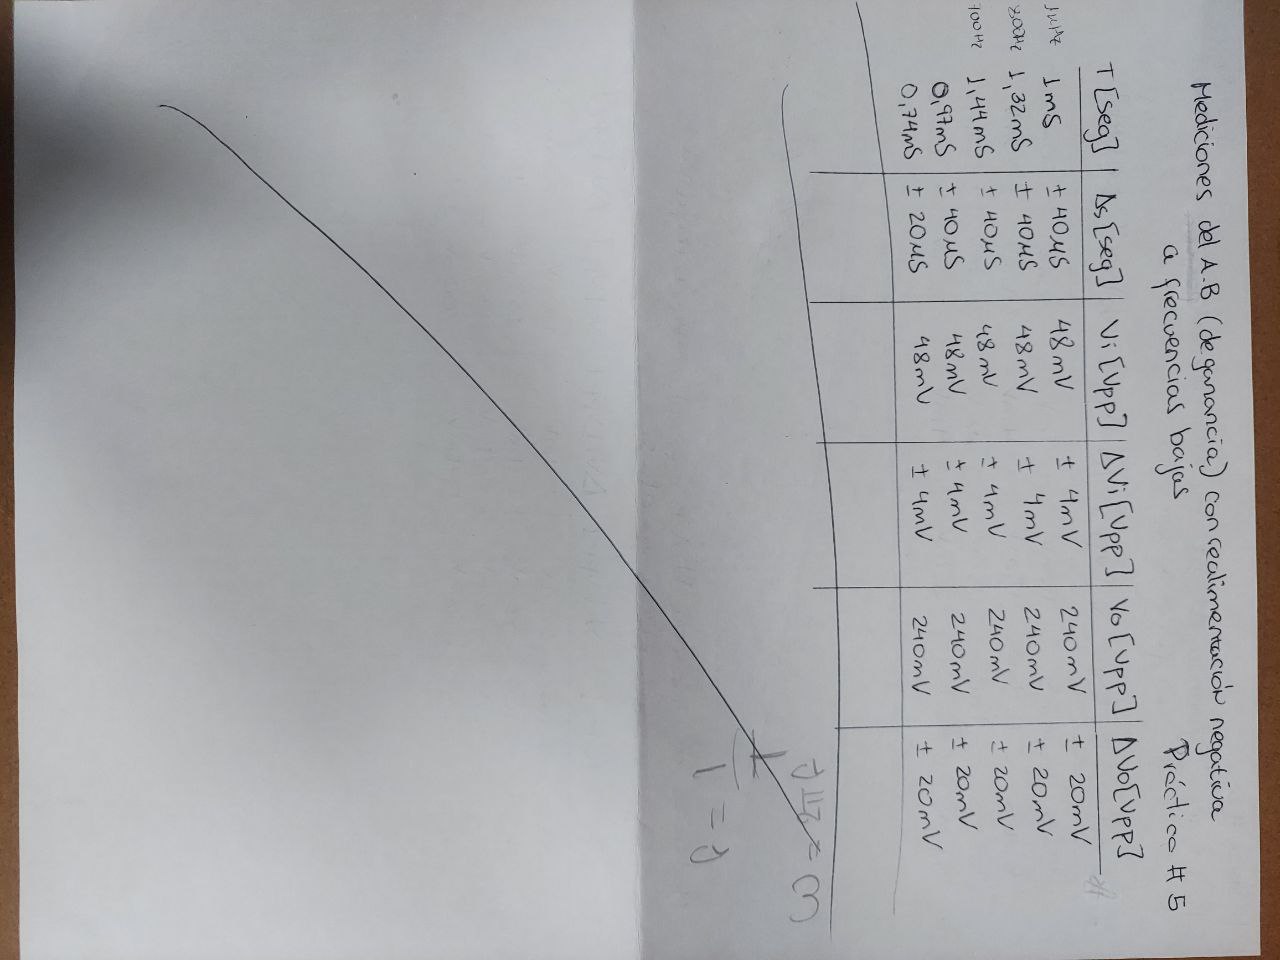 Mediciones del A.B (de ganancia) con realimentación negativa
a frecuencias bajas
Práctica # 5
T [seg] Δs [seg] Vi [Vpp] ΔVi [Vpp] Vo [Vpp] ΔVo [Vpp]
1kHz 1mS ± 40μS 48mV ± 4mV 240mV ± 20mV
800Hz 1,32mS ± 40μS 48mV ± 4mV 240mV ± 20mV
700Hz 1,44mS ± 40μS 48mV ± 4mV 240mV ± 20mV
0,97mS ± 40μS 48mV ± 4mV 240mV ± 20mV
0,74mS ± 20μS 48mV ± 4mV 240mV ± 20mV
f = 1
T
ω = 2πf